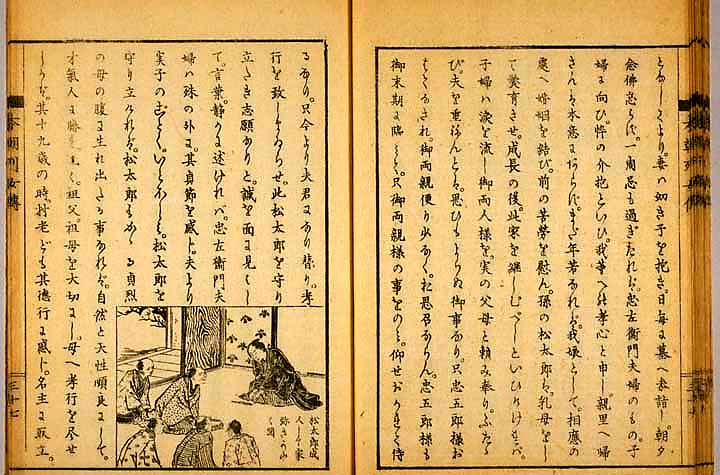 妻ハ幼き子を抱き、日毎に墓へ参詣し、朝夕
念佛怠らず、一周忌も過ぎたれバ、忠左衛門夫婦のもの、子
婦に向ひ、忰の介抱といひ、我等への孝心と申し、親里へ歸
さんも本意にあらねバ、まだ年若なれバ、我嬢として、相應の
處へ婚姻を結び、前の苦勞を慰ん、孫の松太郎も、乳母をし
て養育させ、成長の後、此家を繼しむべしといひけれバ、
子婦ハ涙を流し、御両人様を、実の父母と頼み奉り、ふたゝ
び、夫を重ねんこと、思ひもよらぬ御事なり、只忠五郎様お
はてなされ、御両親便り少なく、お思召あらん、忠五郎様も
御末期に臨ミて、只御両親様の事をのミ、仰せおかせられて侍
るなり、只今より夫君になり替り、孝
行を致しまゐらせ、此松太郎を守り
立たき志願なりと、誠を面に見し
て、言葉静かに述けれバ、忠左衛門夫
婦ハ殊の外に、其貞節を感じ、夫より
実子のごとく、いとをしミ、松太郎を
守り立られける、松太郎もかゝる貞烈
の母の腹に生れ出たる事なれバ、自然と天性順良にして、
才氣人に勝れ、よく、祖父、祖母を大切にし、母へ孝行を尽せ
しかバ、其十九歳の時、村老ども其徳行に感じ、名主に取立、
松太郎成
人して家
弥さかゆ
る圖
本朝列女傳
三十七